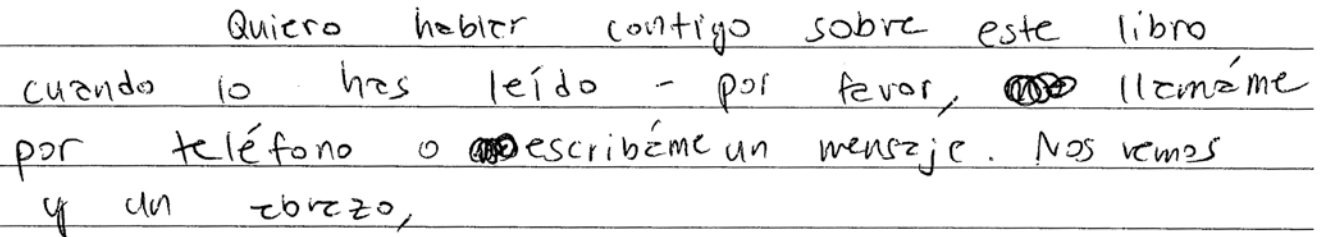 Quiero hablar contigo sobre este libro
cuando lo has leído - por favor, llamáme
por teléfono o escribáme un mensaje. Nos vemos
y un abrazo,